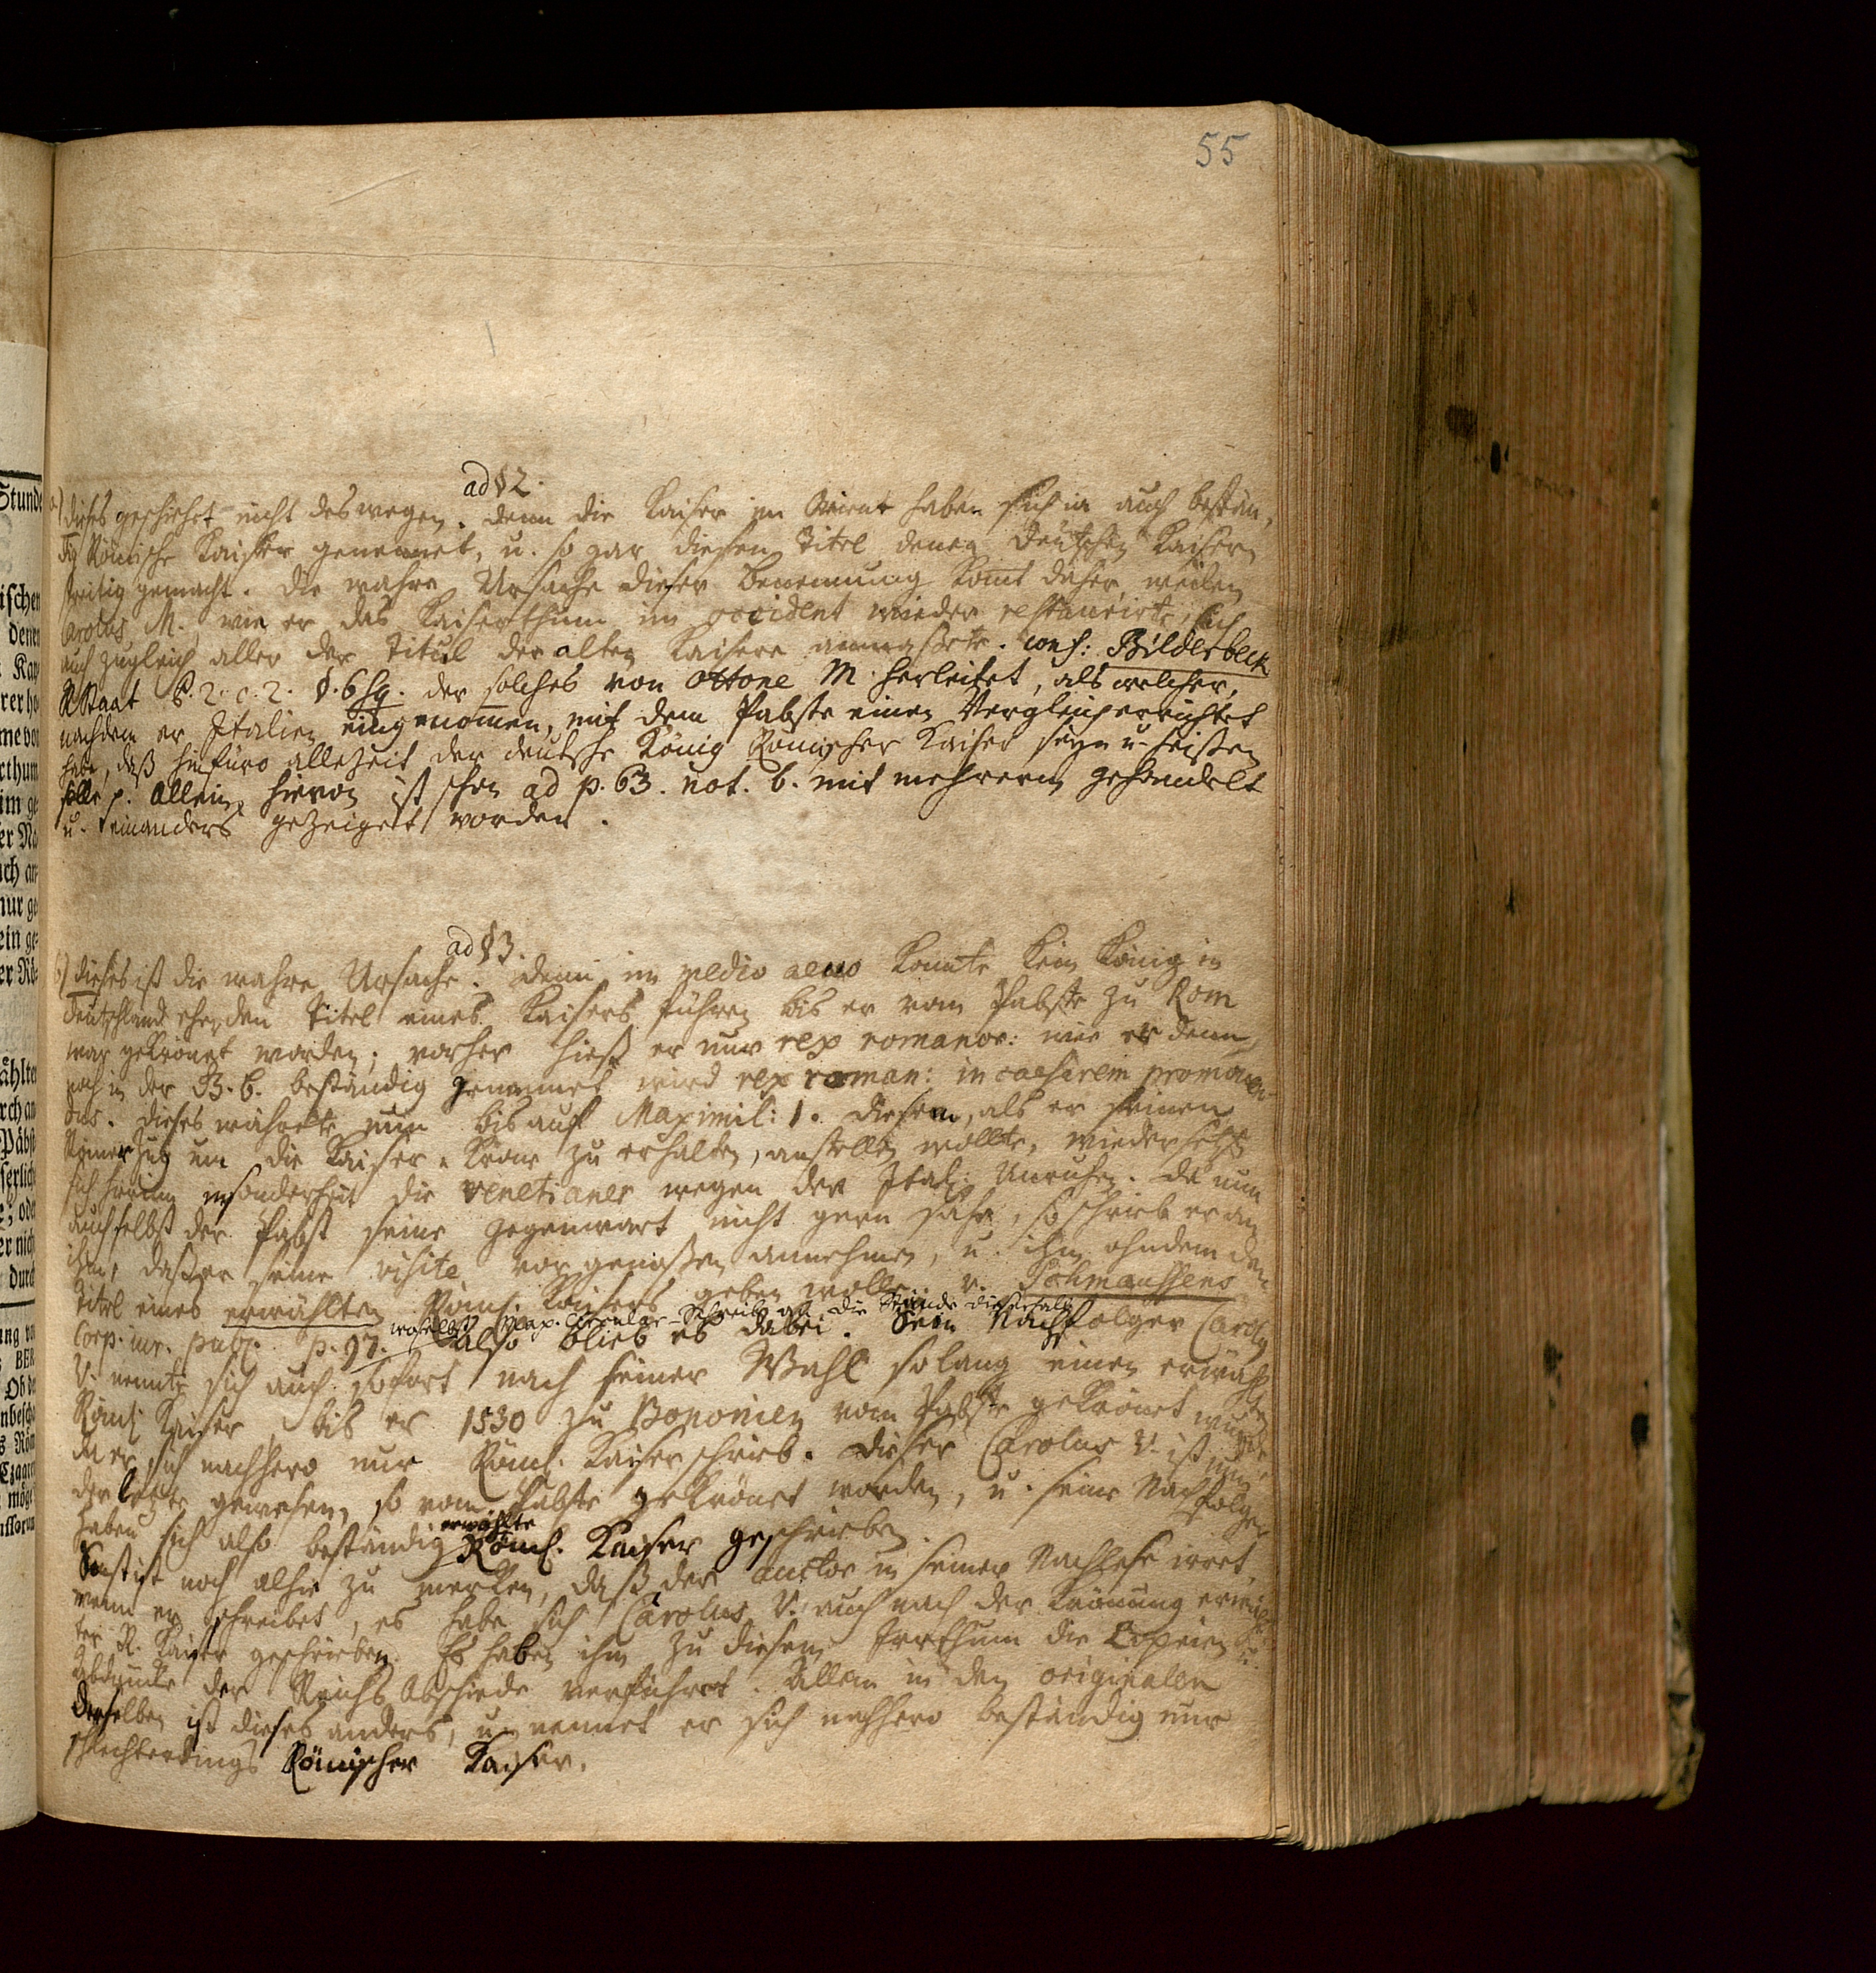 55
ad § 2.
a) dieses geschiehet nicht deswegen. denn die Kaiser im Orient haben sich ja auch bestän,
dig Römische Kaiser genennet, u. so gar diesen Titel denen Deutschen Kaisern
streitig gemacht. die wahre Ursache dieser Benennung komt daher, weilen
Carolus M. wie er das Kaiserthum im occident wieder restaurirte, sich
auch zugleich aller der Titul der alten Kaisere anmassete. conf: Bilderbeck
RStaat P. 2. c. 2. §. 6 sq. der solches von Ottone M. herleitet, als welcher,
nachdem er Italien eingenommen, mit dem Pabste einen Vergleich errichtet
habe, daß hinfüro allezeit der deutsche König Römischer Kaiser seyn u. heissen
solle p. Allein, hievon ist schon ad p. 63. not. b. mit mehrerm gehandelt
u. ein anders gezeiget worden.
ad § 3.
b) dieses ist die wahre Ursache. denn im medio aevo konnte kein König in
Deutschland ehe den Titel eines Kaisers führen bis er vom Pabste zu Rom
war gekrönet worden; vorher hieß er nur rex romanor: wie er denn
noch in der G. B. beständig genennet wird rex roman: in caesarem promoven-
dus. dieses währete nun bis auf Maximil: 1. diesem, als er seinen
Römerzug um die Kaiser-Krone zu erhalten, anstellen wollte, wiedersetzte
sich hierinn insonderheit die Venetianer wegen der Ital: Unruhen. Da nun
auch selbst der Pabst seine Gegenwart nicht gern sahe, so schrieb er an
ihm, daß er seine visite vor genossen annehmen, u. ihm ohndem den
Titel eines erwählten Röm. Kaisers geben wolle. v. Schmaussens
Corp. iur. publ. p. 97. woselbst Max. Circular-Schreiben an die Stände diesfals
also blieb es dabei. Sein Nachfolger Carolus
V. nennte sich auch sofort nach seiner Wahl solang einen erwähl-
ten Röm: Kaiser, bis er 1530 zu Bononien vom Pabste gekrönet wurde,
da er sich nachhero nur Röm. Kaiser schrieb. dieser Carolus V. ist nun
der letzte gewesen, so vom Pabste gekrönet worden, u. seine Nachfolger
haben sich also beständig erwählte Röm. Kaiser geschrieben.
Sonst ist noch alhie zu merken, daß der auctor in seiner Nachlese irret,
wenn er schreibet, es habe sich Carolus V. auch nach der Krönung erwähl-
ter R. Kaiser geschrieben. Es haben ihn zu diesem Irrthum die Copeien u.
Abdrücke der Reichs Abschiede verführet. Allein in den originalen
derselben ist dieses anders, u. nennet er sich nachhero beständig nur
schlechterdings Römischer Kaiser.